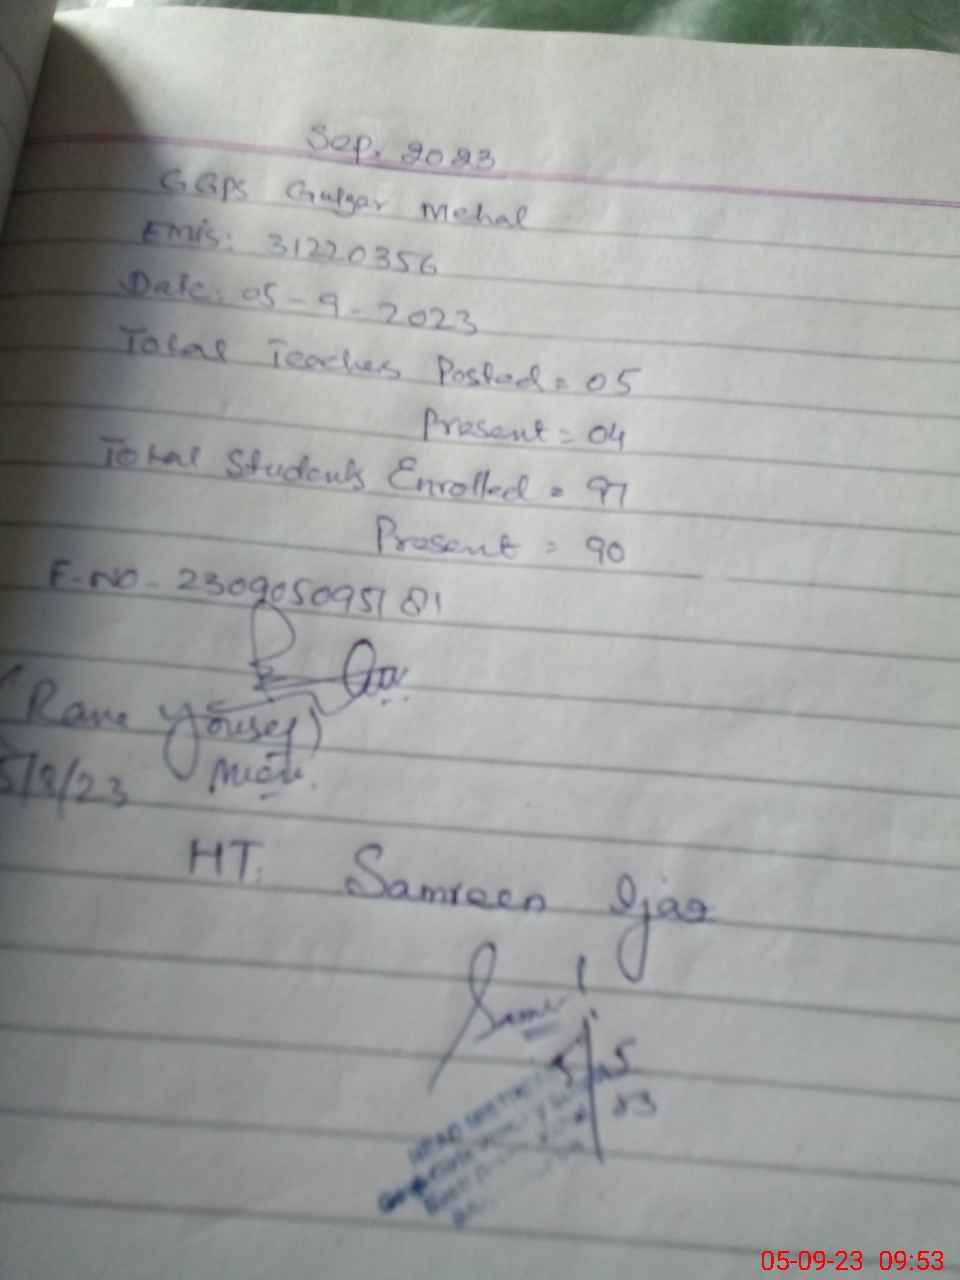 Sep. 2023
GGPS Gulzar Mehal
Emis: 31220356
Date: 05-9-2023
Total Teaches Posted = 05
Present = 04
Total Students Enrolled = 97
Present = 90
F.NO - 23090509518 1
(Rana Yousef)
5/9/23
HT: Samreen Ijaz
HEAD MISTRESS
05-09-23 09:53